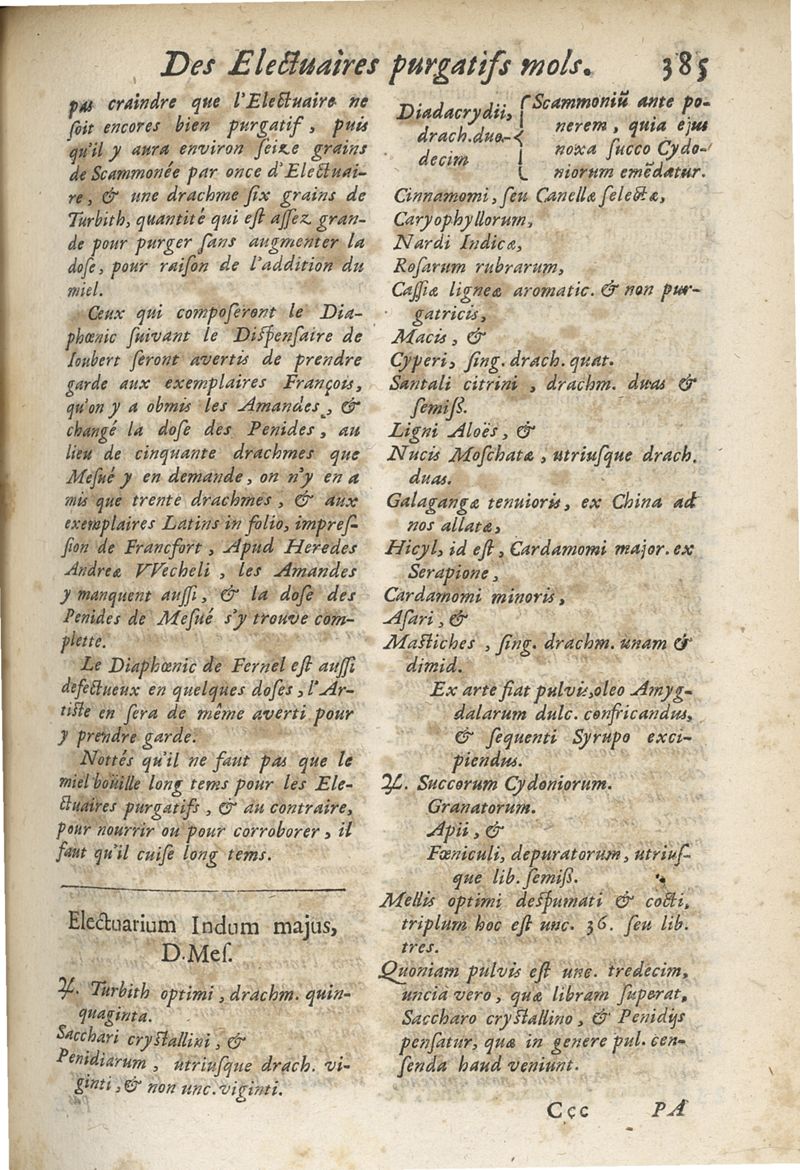 Des Electuaires purgatifs mols. 385
pas craindre que l'Electuaire ne
ſoit encores bien purgatif, puis
qu'il y aura environ ſeize grains
de Scammonée par once d'Electuai-
re, & une drachme ſix grains de
Turbith, quantité qui eſt aſſez gran-
de pour purger ſans augmenter la
doſe, pour raiſon de l'addition du
miel.
Ceux qui compoſeront le Dia-
phœnic ſuivant le Diſpenſaire de
Ioubert ſeront avertis de prendre
garde aux exemplaires François,
qu'on y a obmis les Amandes, &
changé la doſe des Penides, au
lieu de cinquante drachmes que
Meſué y en demande, on n'y en a
mis que trente drachmes, & aux
exemplaires Latins in folio, impreſ-
ſion de Francfort, Apud Heredes
Andreæ VVecheli, les Amandes
y manquent auſſi, & la doſe des
Penides de Meſué s'y trouve com-
plette.
Le Diaphœnic de Fernel eſt auſſi
defectueux en quelques doſes, l'Ar-
tiſte en ſera de même averti pour
y prendre garde.
Nottés qu'il ne faut pas que le
miel boüille long tems pour les Ele-
ctuaires purgatifs, & au contraire,
pour nourrir ou pour corroborer, il
faut qu'il cuiſe long tems.
Electuarium Indum majus,
D.Meſ.
℞. Turbith optimi, drachm. quin-
quaginta.
Sacchari cryſtallini, &
Penidiarum, utriuſque drach. vi-
ginti, & non unc. viginti.
Diadacrydii, drach. duo- decim { Scammoniũ ante po-
nerem, quia ejus
noxa ſucco Cydo-
niorum emẽdatur.
Cinnamomi, ſeu Canellæ ſelectæ,
Caryophyllorum,
Nardi Indicæ,
Roſarum rubrarum,
Caſſiæ ligneæ aromatic. & non pur-
gatricis,
Macis, &
Cyperi, ſing. drach. quat.
Santali citrini, drachm. duas &
ſemiſſ.
Ligni Aloës, &
Nucis Moſchatæ, utriuſque drach.
duas.
Galagangæ tenuioris, ex China ad
nos allatæ,
Hicyl, id eſt, Cardamomi major. ex
Serapione,
Cardamomi minoris,
Aſari, &
Maſtiches, ſing. drachm. unam &
dimid.
Ex arte fiat pulvis, oleo Amyg-
dalarum dulc. confricandus,
& ſequenti Syrupo exci-
piendus.
℞. Succorum Cydoniorum.
Granatorum.
Apii, &
Fœniculi, depuratorum, utriuſ-
que lib. ſemiſſ.
Mellis optimi deſpumati & cocti,
triplum hoc eſt unc. 36. ſeu lib.
tres.
Quoniam pulvis eſt unc. tredecim,
uncia vero, quæ libram ſuperat,
Saccharo cryſtallino, & Penidijs
penſatur, quæ in genere pul. cen-
ſenda haud veniunt.
Ccc PA